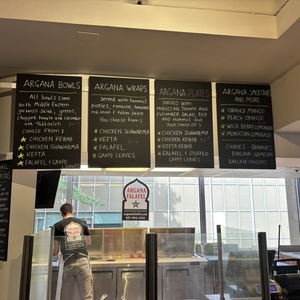 ARGANA BOWLS
All bowls come
with Middle Eastern
garbanzo salad, greens,
chopped tomato and cucumber
and tabbouleh
CHOOSE FROM:
CHICKEN SHAWARMA
CHICKEN KEBAB
KEFTA
FALAFEL / GRAPE
ARGANA WRAPS
Served with hummus
pickles, romaine, tomatoes
red onion & tahini sauce
You choose from:
CHICKEN SHAWARMA
KEFTA
CHICKEN KEBAB
FALAFEL
GRAPE LEAVES
ARGANA PLATES
SERVED WITH
MOROCCAN TOMATO AND
CUCUMBER SALAD, RICE
AND HUMMUS AND
YOUR CHOICE OF:
CHICKEN SHAWARMA
CHICKEN KEBAB
KEFTA KEBAB
FALAFEL / STUFFED
GRAPE LEAVES
ARGANA SMOOTHIE
AND MORE
ORANGO MANGO
PEACH ORANGE
WILD BERRY
BAKLAVA
ARGANA
FALAFEL